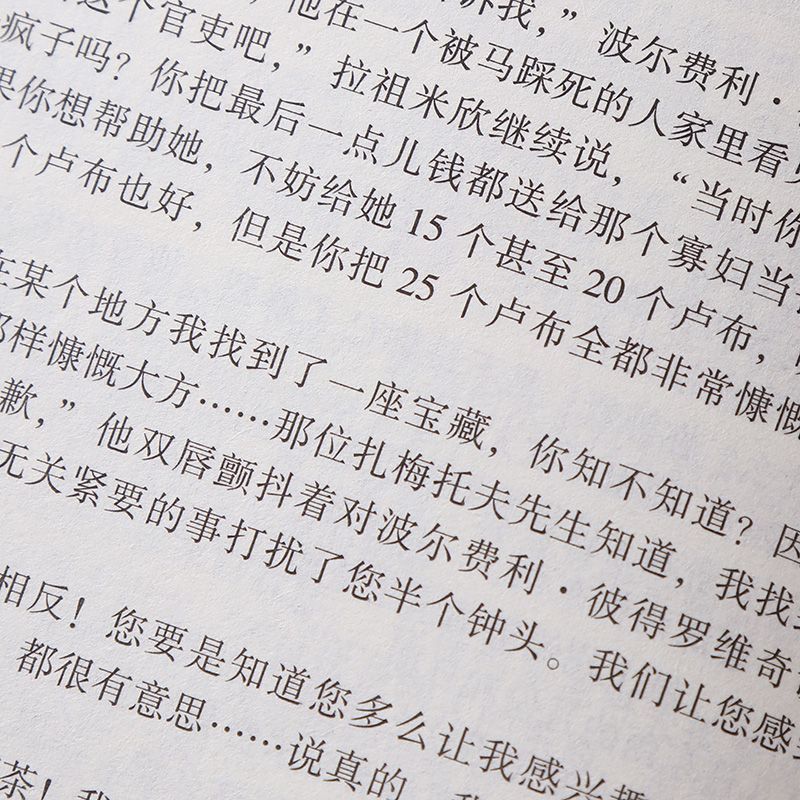 诉我，”波尔费利·
这个官吏吧，”拉祖米欣继续说，“当时你
他在一个被马踩死的人家里看见
疯子吗？你把最后一点儿钱都送给那个寡妇当
果你想帮助她，不妨给她15个甚至20个卢布，
个卢布也好，但是你把25个卢布全都非常慷慨
在某个地方我找到了一座宝藏，你知不知道？因
那样慷慨大方……那位扎梅托夫先生知道，我找到
歉，”他双唇颤抖着对波尔费利·彼得罗维奇
无关紧要的事打扰了您半个钟头。我们让您感到
相反！您要是知道您多么让我感兴趣
都很有意思……说真的，我
茶！我